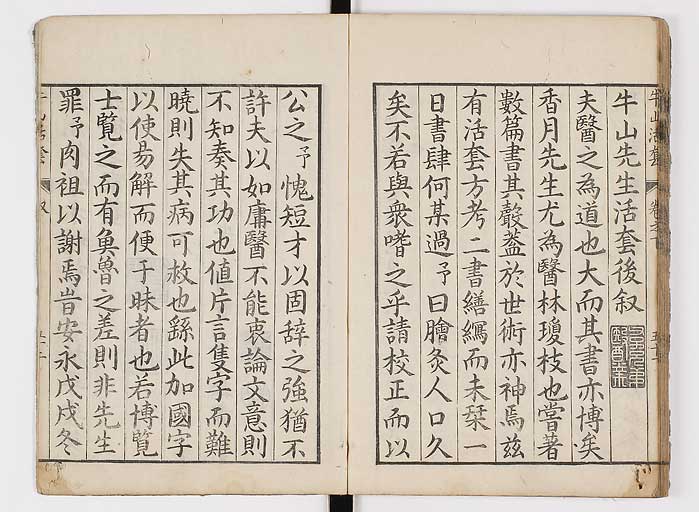 牛山先生活套後叙
夫醫之為道也大而其書亦博矣
香月先生尤為醫林瓊枝也嘗著
數篇書其殼葢於世術亦神焉茲
有活套方考二書繕繩而未栞一
日書肆何某過予曰膾灸人口久
矣不若與衆嗜之乎請校正而以
公之予愧短才以固辞之強猶不
許夫以如庸醫不能衷論文意則
不知奏其功也値片言隻字而難
曉則失其病可赦也繇此加國字
以使昜解而便于昧者也若博覽
士覽之而有魚魯之差則非先生
罪予肉袒以謝焉旹安永戊戌冬